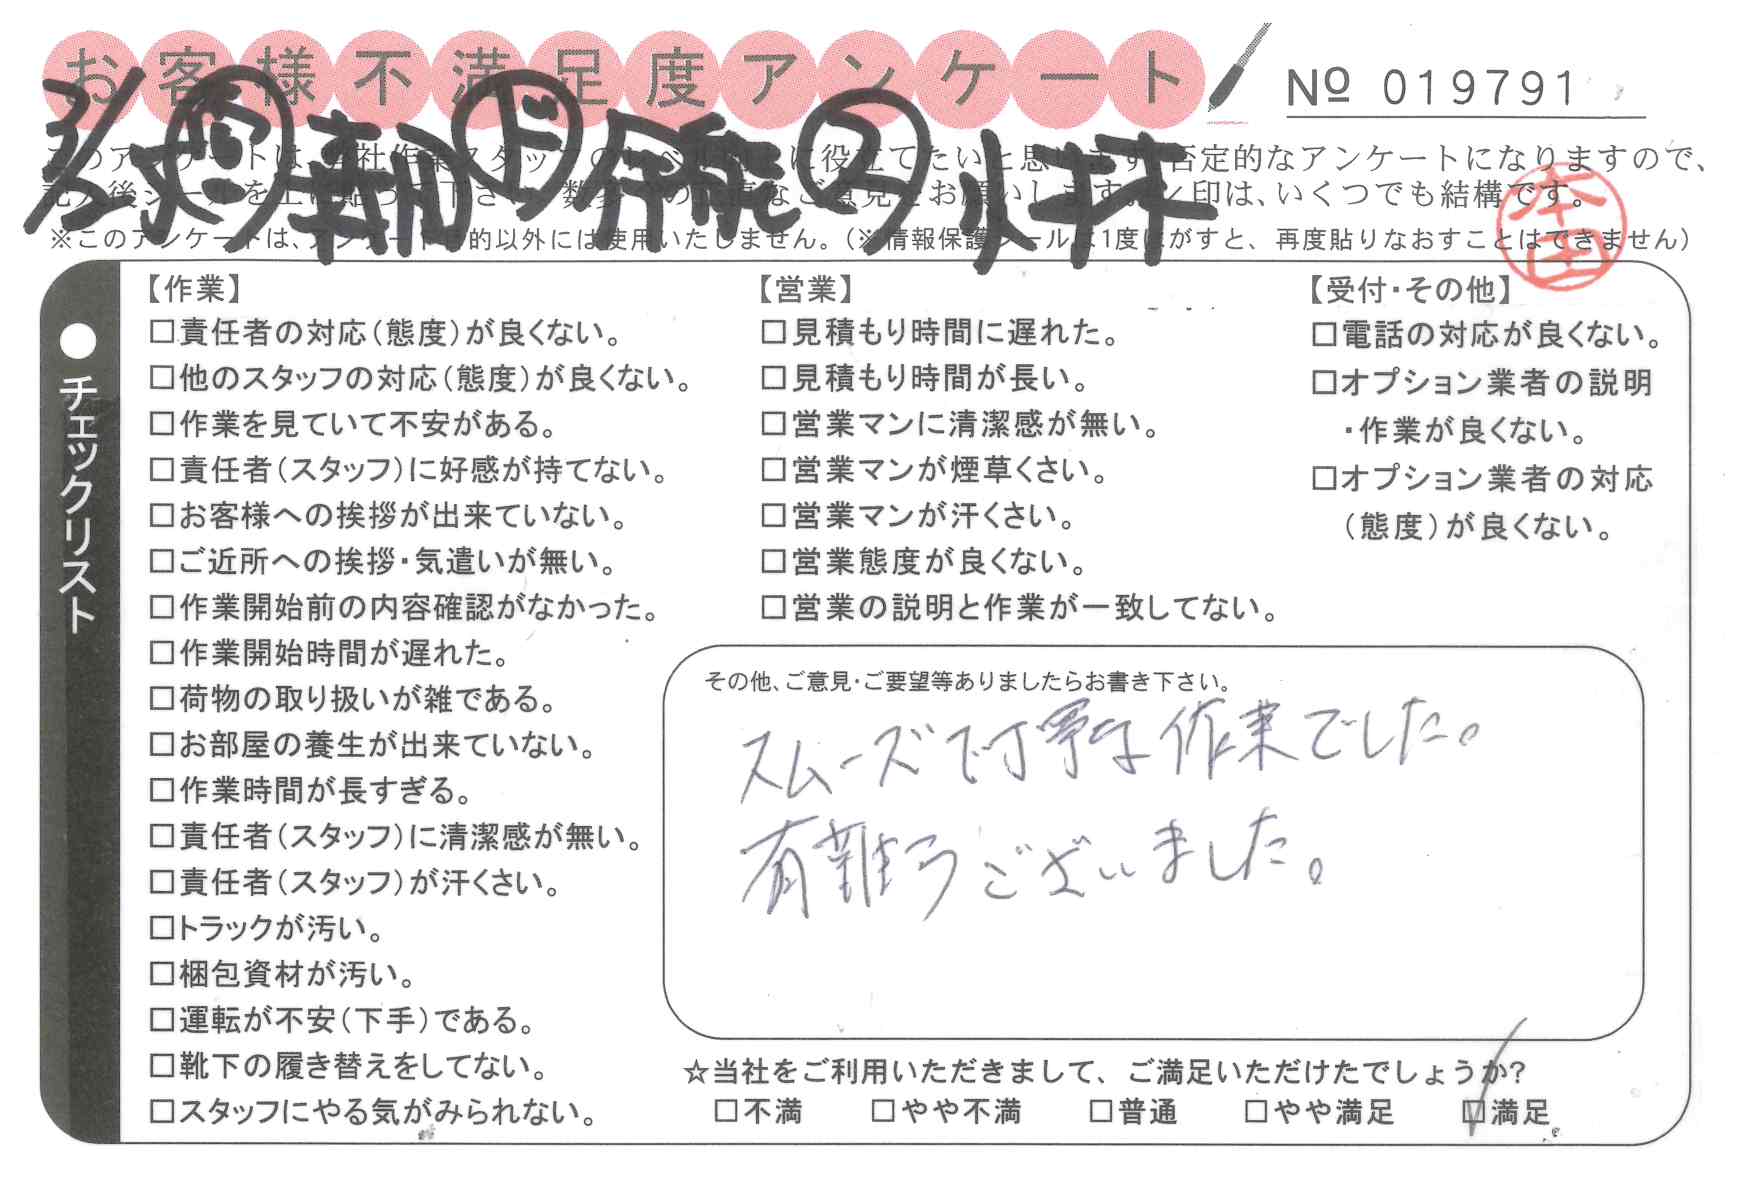 お客様不満足度アンケート
№ 019791
このアンケートは、当社作業スタッフのレベル向上に役立てたいと思います。否定的なアンケートになりますので、
記入後シールを上に貼って下さい。数多くの正直なご意見をお願いします。レ印は、いくつでも結構です。
※このアンケートは、アンケート目的以外には使用いたしません。（※情報保護シールは1度はがすと、再度貼りなおすことはできません）
本田
●チェックリスト
【作業】
□責任者の対応（態度）が良くない。
□他のスタッフの対応（態度）が良くない。
□作業を見ていて不安がある。
□責任者（スタッフ）に好感が持てない。
□お客様への挨拶が出来ていない。
□ご近所への挨拶・気遣いが無い。
□作業開始前の内容確認がなかった。
□作業開始時間が遅れた。
□荷物の取り扱いが雑である。
□お部屋の養生が出来ていない。
□作業時間が長すぎる。
□責任者（スタッフ）に清潔感が無い。
□責任者（スタッフ）が汗くさい。
□トラックが汚い。
□梱包資材が汚い。
□運転が不安（下手）である。
□靴下の履き替えをしてない。
□スタッフにやる気がみられない。
【営業】
□見積もり時間に遅れた。
□見積もり時間が長い。
□営業マンに清潔感が無い。
□営業マンが煙草くさい。
□営業マンが汗くさい。
□営業態度が良くない。
□営業の説明と作業が一致してない。
【受付・その他】
□電話の対応が良くない。
□オプション業者の説明
・作業が良くない。
□オプション業者の対応
（態度）が良くない。
その他、ご意見・ご要望等ありましたらお書き下さい。
スムーズで丁寧な作業でした。
有難うございました。
☆当社をご利用いただきまして、ご満足いただけたでしょうか?
□不満 □やや不満 □普通 □やや満足 ☑満足